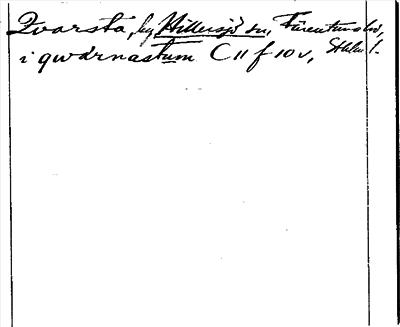 Qvarsta, by Hillersjö sn, Färentuna hd,
i qwdrnastum C 11 f 10 v, Sthlm l.